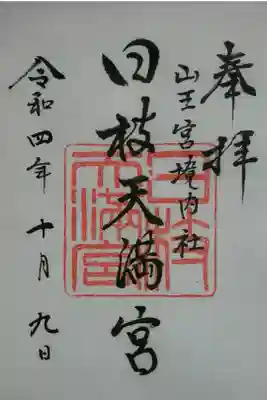 奉拝
山王宮境内社
日枝天満宮
令和四年十月九日
日枝
天満宮